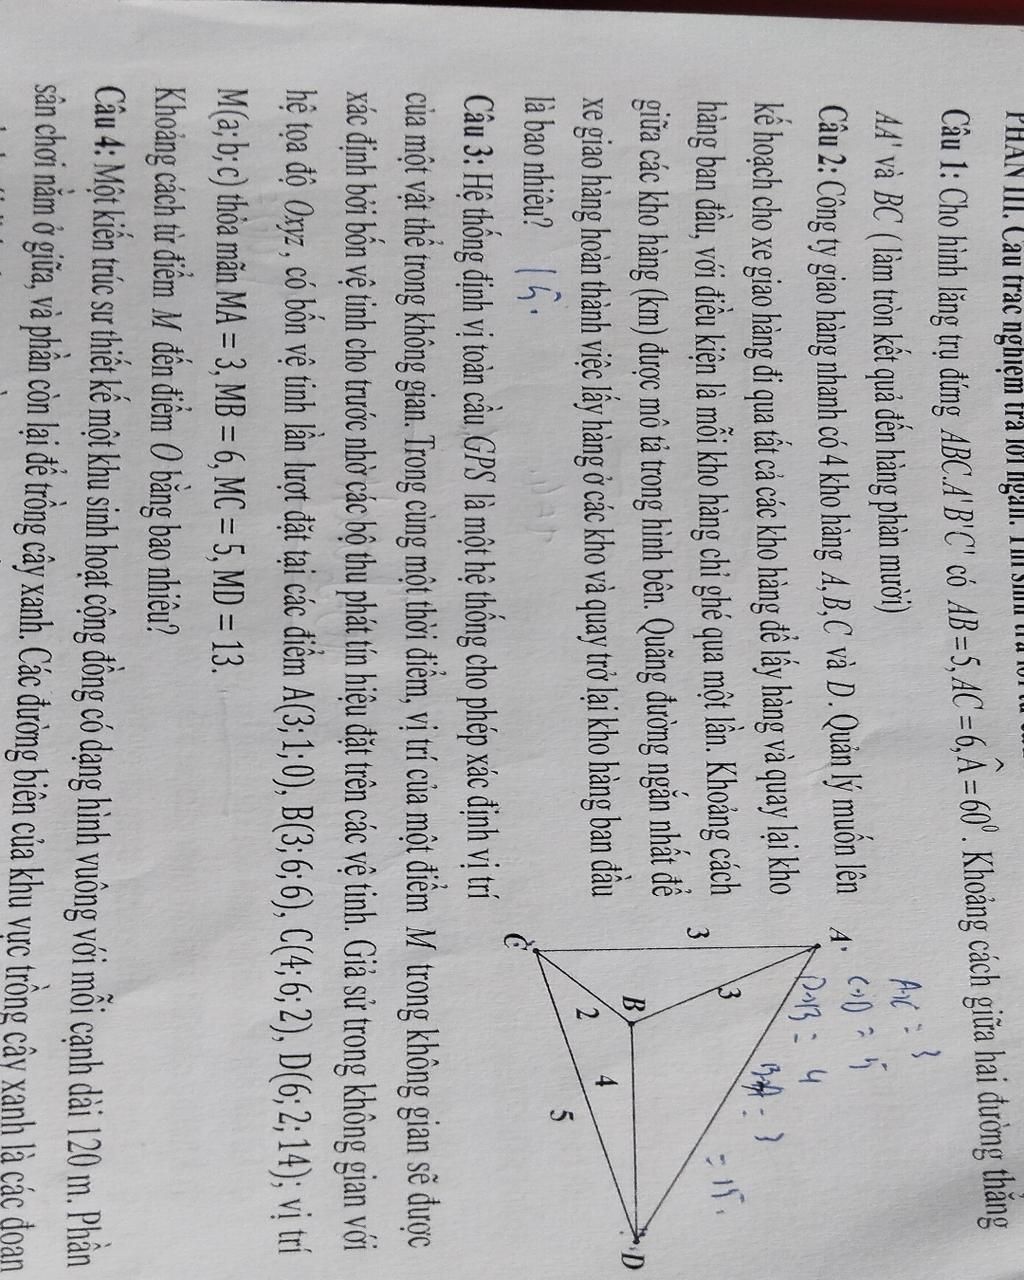 PHẦN III. Câu trắc nghiệm trả lời ngắn. Thí sinh trả lời từ câu
Câu 1: Cho hình lăng trụ đứng ABC.A'B'C' có AB = 5, AC = 6, Â = 60⁰. Khoảng cách giữa hai đường thẳng
AA' và BC ( làm tròn kết quả đến hàng phần mười)
Câu 2: Công ty giao hàng nhanh có 4 kho hàng A, B, C và D. Quản lý muốn lên
kế hoạch cho xe giao hàng đi qua tất cả các kho hàng để lấy hàng và quay lại kho
hàng ban đầu, với điều kiện là mỗi kho hàng chỉ ghé qua một lần. Khoảng cách
giữa các kho hàng (km) được mô tả trong hình bên. Quãng đường ngắn nhất để
xe giao hàng hoàn thành việc lấy hàng ở các kho và quay trở lại kho hàng ban đầu
là bao nhiêu? 15.
A→C = 3
C→D = 5
D→B = 4
B→A = 3
= 15.
A
3
3
B
2
4
5
C
D
Câu 3: Hệ thống định vị toàn cầu GPS là một hệ thống cho phép xác định vị trí
của một vật thể trong không gian. Trong cùng một thời điểm, vị trí của một điểm M trong không gian sẽ được
xác định bởi bốn vệ tinh cho trước nhờ các bộ thu phát tín hiệu đặt trên các vệ tinh. Giả sử trong không gian với
hệ tọa độ Oxyz, có bốn vệ tinh lần lượt đặt tại các điểm A(3;1;0), B(3;6;6), C(4;6;2), D(6;2;14); vị trí
M(a;b;c) thỏa mãn MA = 3, MB = 6, MC = 5, MD = 13.
Khoảng cách từ điểm M đến điểm O bằng bao nhiêu?
Câu 4: Một kiến trúc sư thiết kế một khu sinh hoạt cộng đồng có dạng hình vuông với mỗi cạnh dài 120 m. Phần
sân chơi nằm ở giữa, và phần còn lại để trồng cây xanh. Các đường biên của khu vực trồng cây xanh là các đoạn